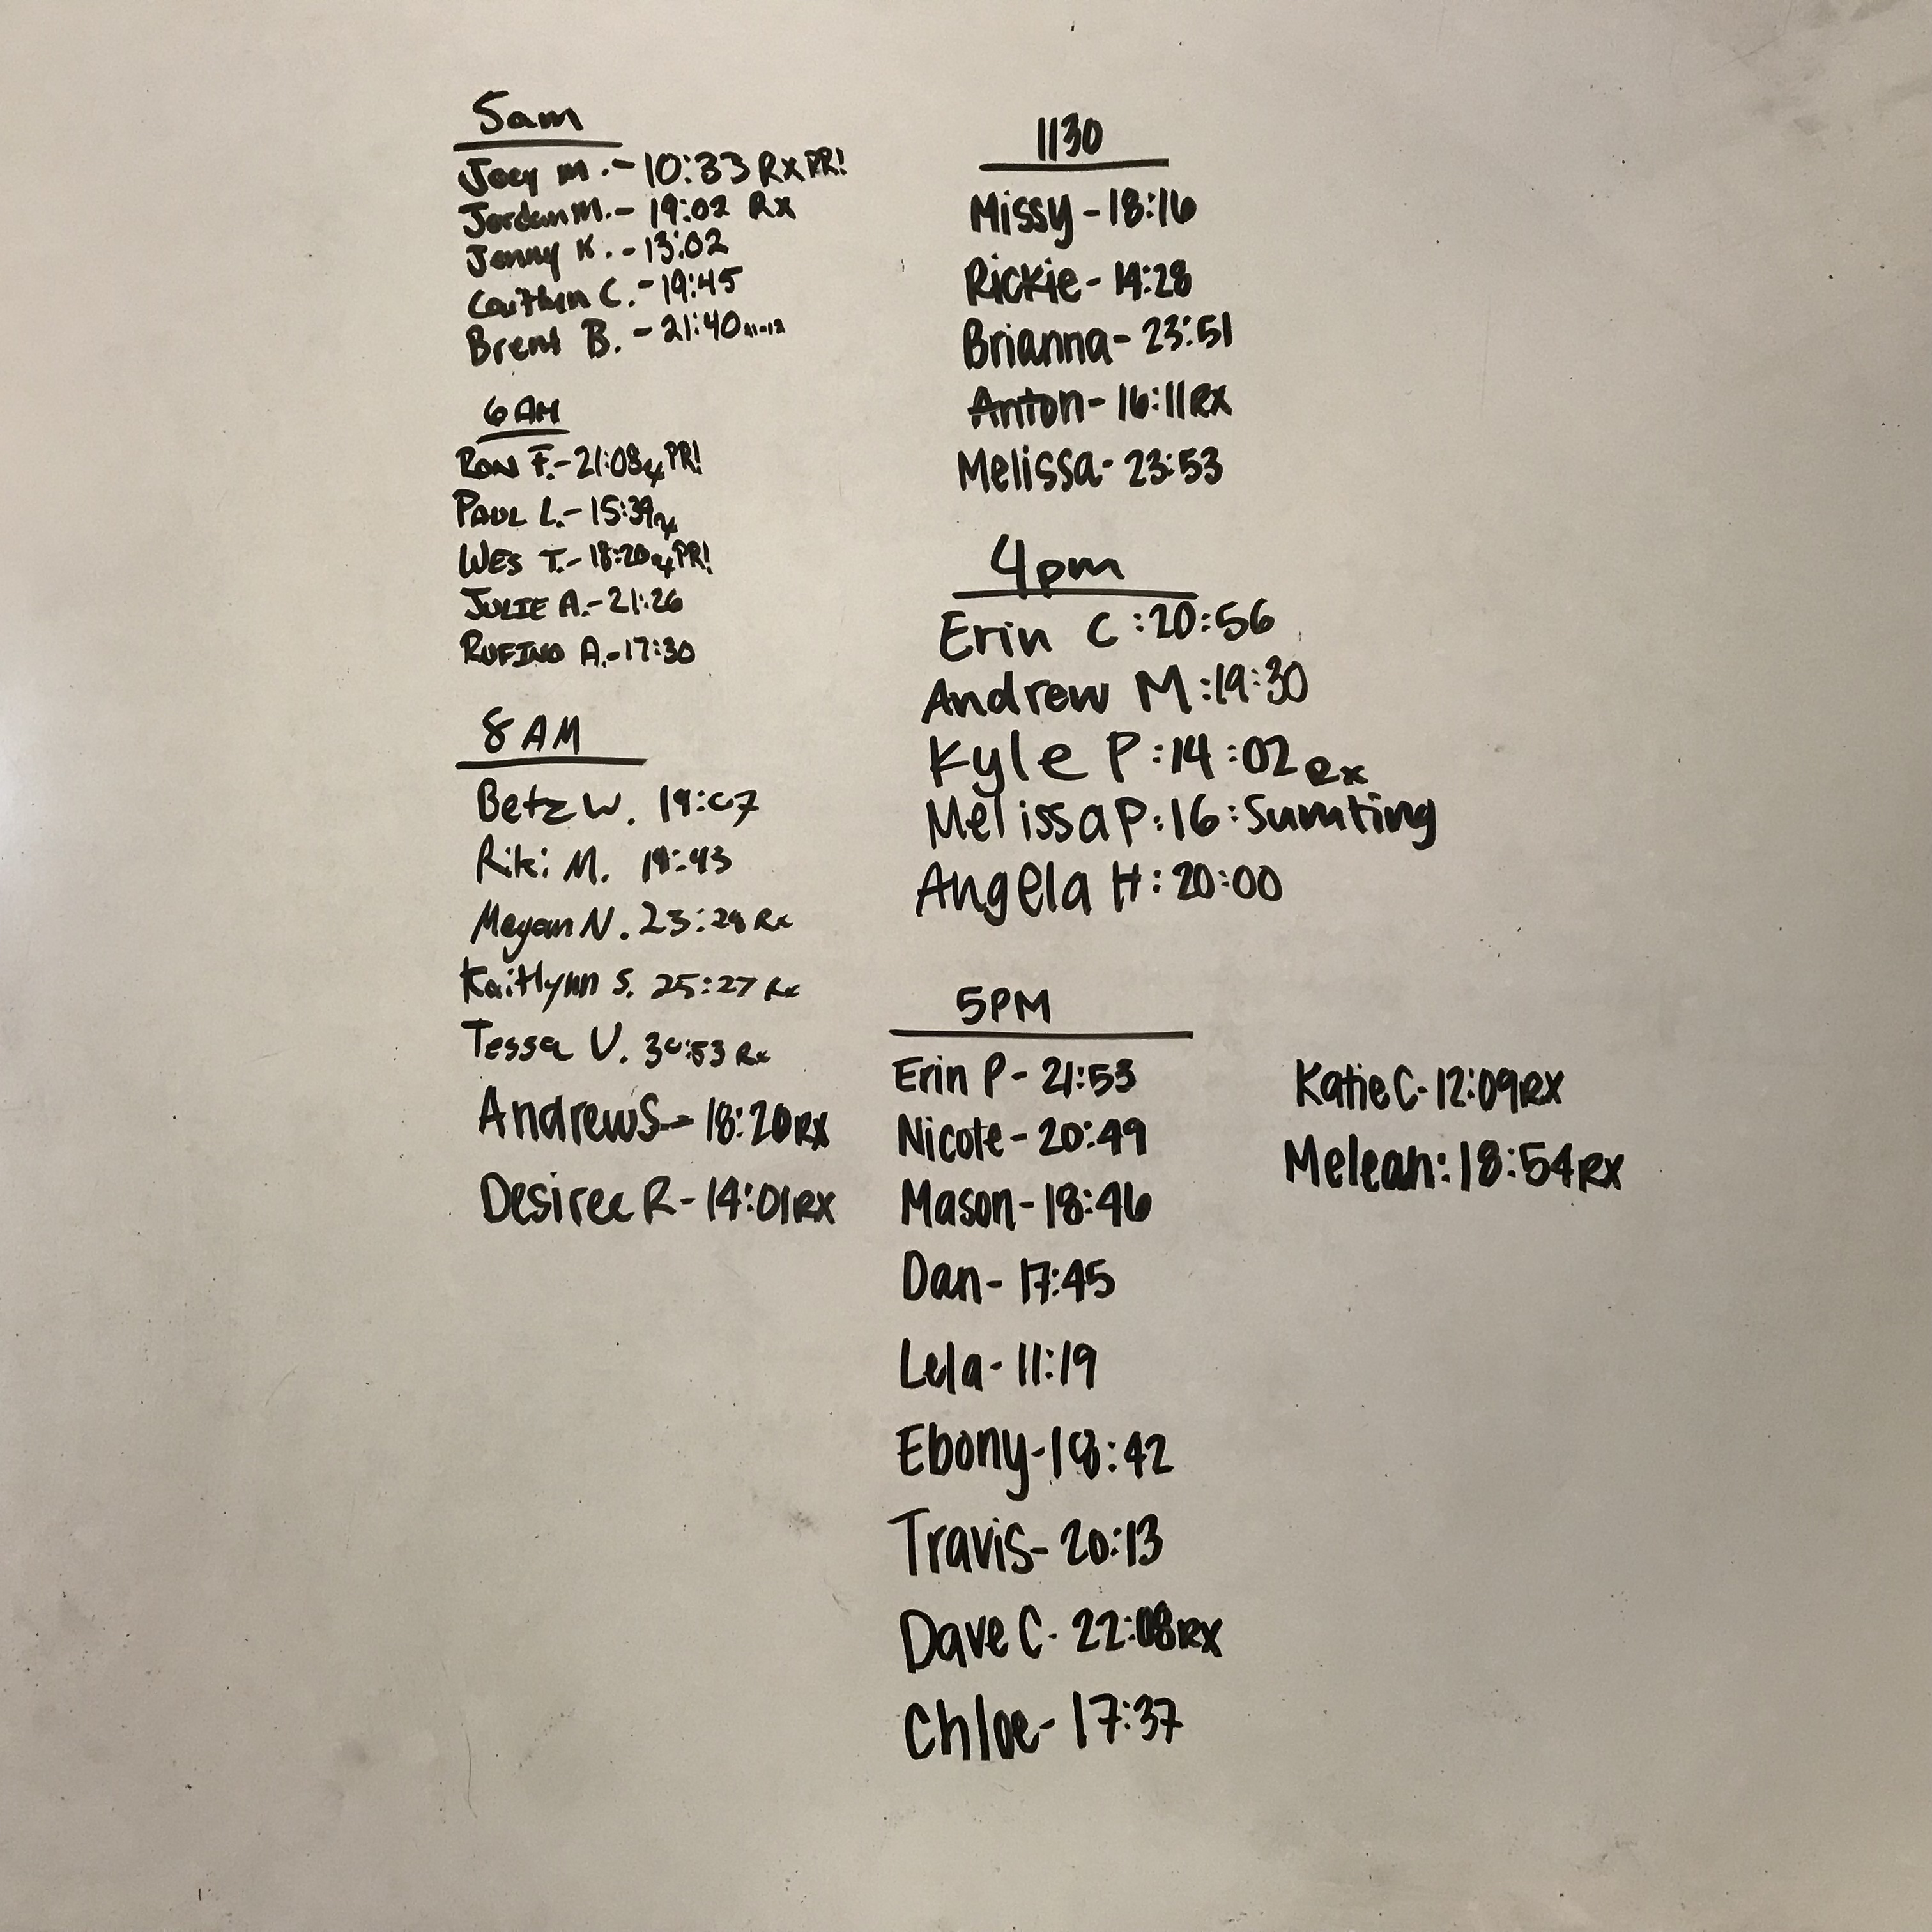 5am
Joey M. - 10:33 Rx PR!
Jordan M. - 19:02 Rx
Jenny K. - 13:02
Caitlyn C. - 19:45
Brent B. - 21:40
6 AM
RON F. - 21:08 Rx PR!
PAUL L. - 15:39 Rx
WES T. - 18:20 Rx PR!
JULIE A. - 21:26
RUFINO A. - 17:30
8 AM
Betz W. 19:07
Riki M.
Megan N. 23:28 Rx
Kaitlynn S. 25:27 Rx
Tessa V. 30:53 Rx
Andrew S - 18:20 RX
Desiree R - 14:01 RX
1130
Missy - 18:16
Rickie - 14:28
Brianna - 23:51
Anton - 16:11 RX
Melissa - 23:53
4pm
Erin C : 20:56
Andrew M : 19:30
Kyle P : 14:02 Rx
Melissa P : 16 : Sumting
Angela H : 20:00
5PM
Erin P - 21:53
Nicole - 20:49
Mason - 18:46
Dan - 17:45
Lela - 11:19
Ebony - 18:42
Travis - 20:13
Dave C - 22:08 RX
Chloe - 17:37
Katie C - 12:09 RX
Melean : 18:54 RX